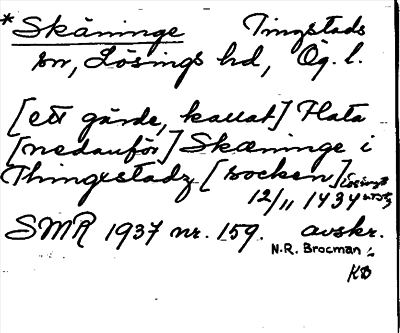 *Skäninge Tingstads
sn, Lösings hd, Ög. l.
[ett gärde, kallat] Flata
[nedanför] Skæninge i
Thingestadz [socken] Lösings
12/11 1434
SMR 1937 nr. 159. avskr.
N.R. Brocman :
KD